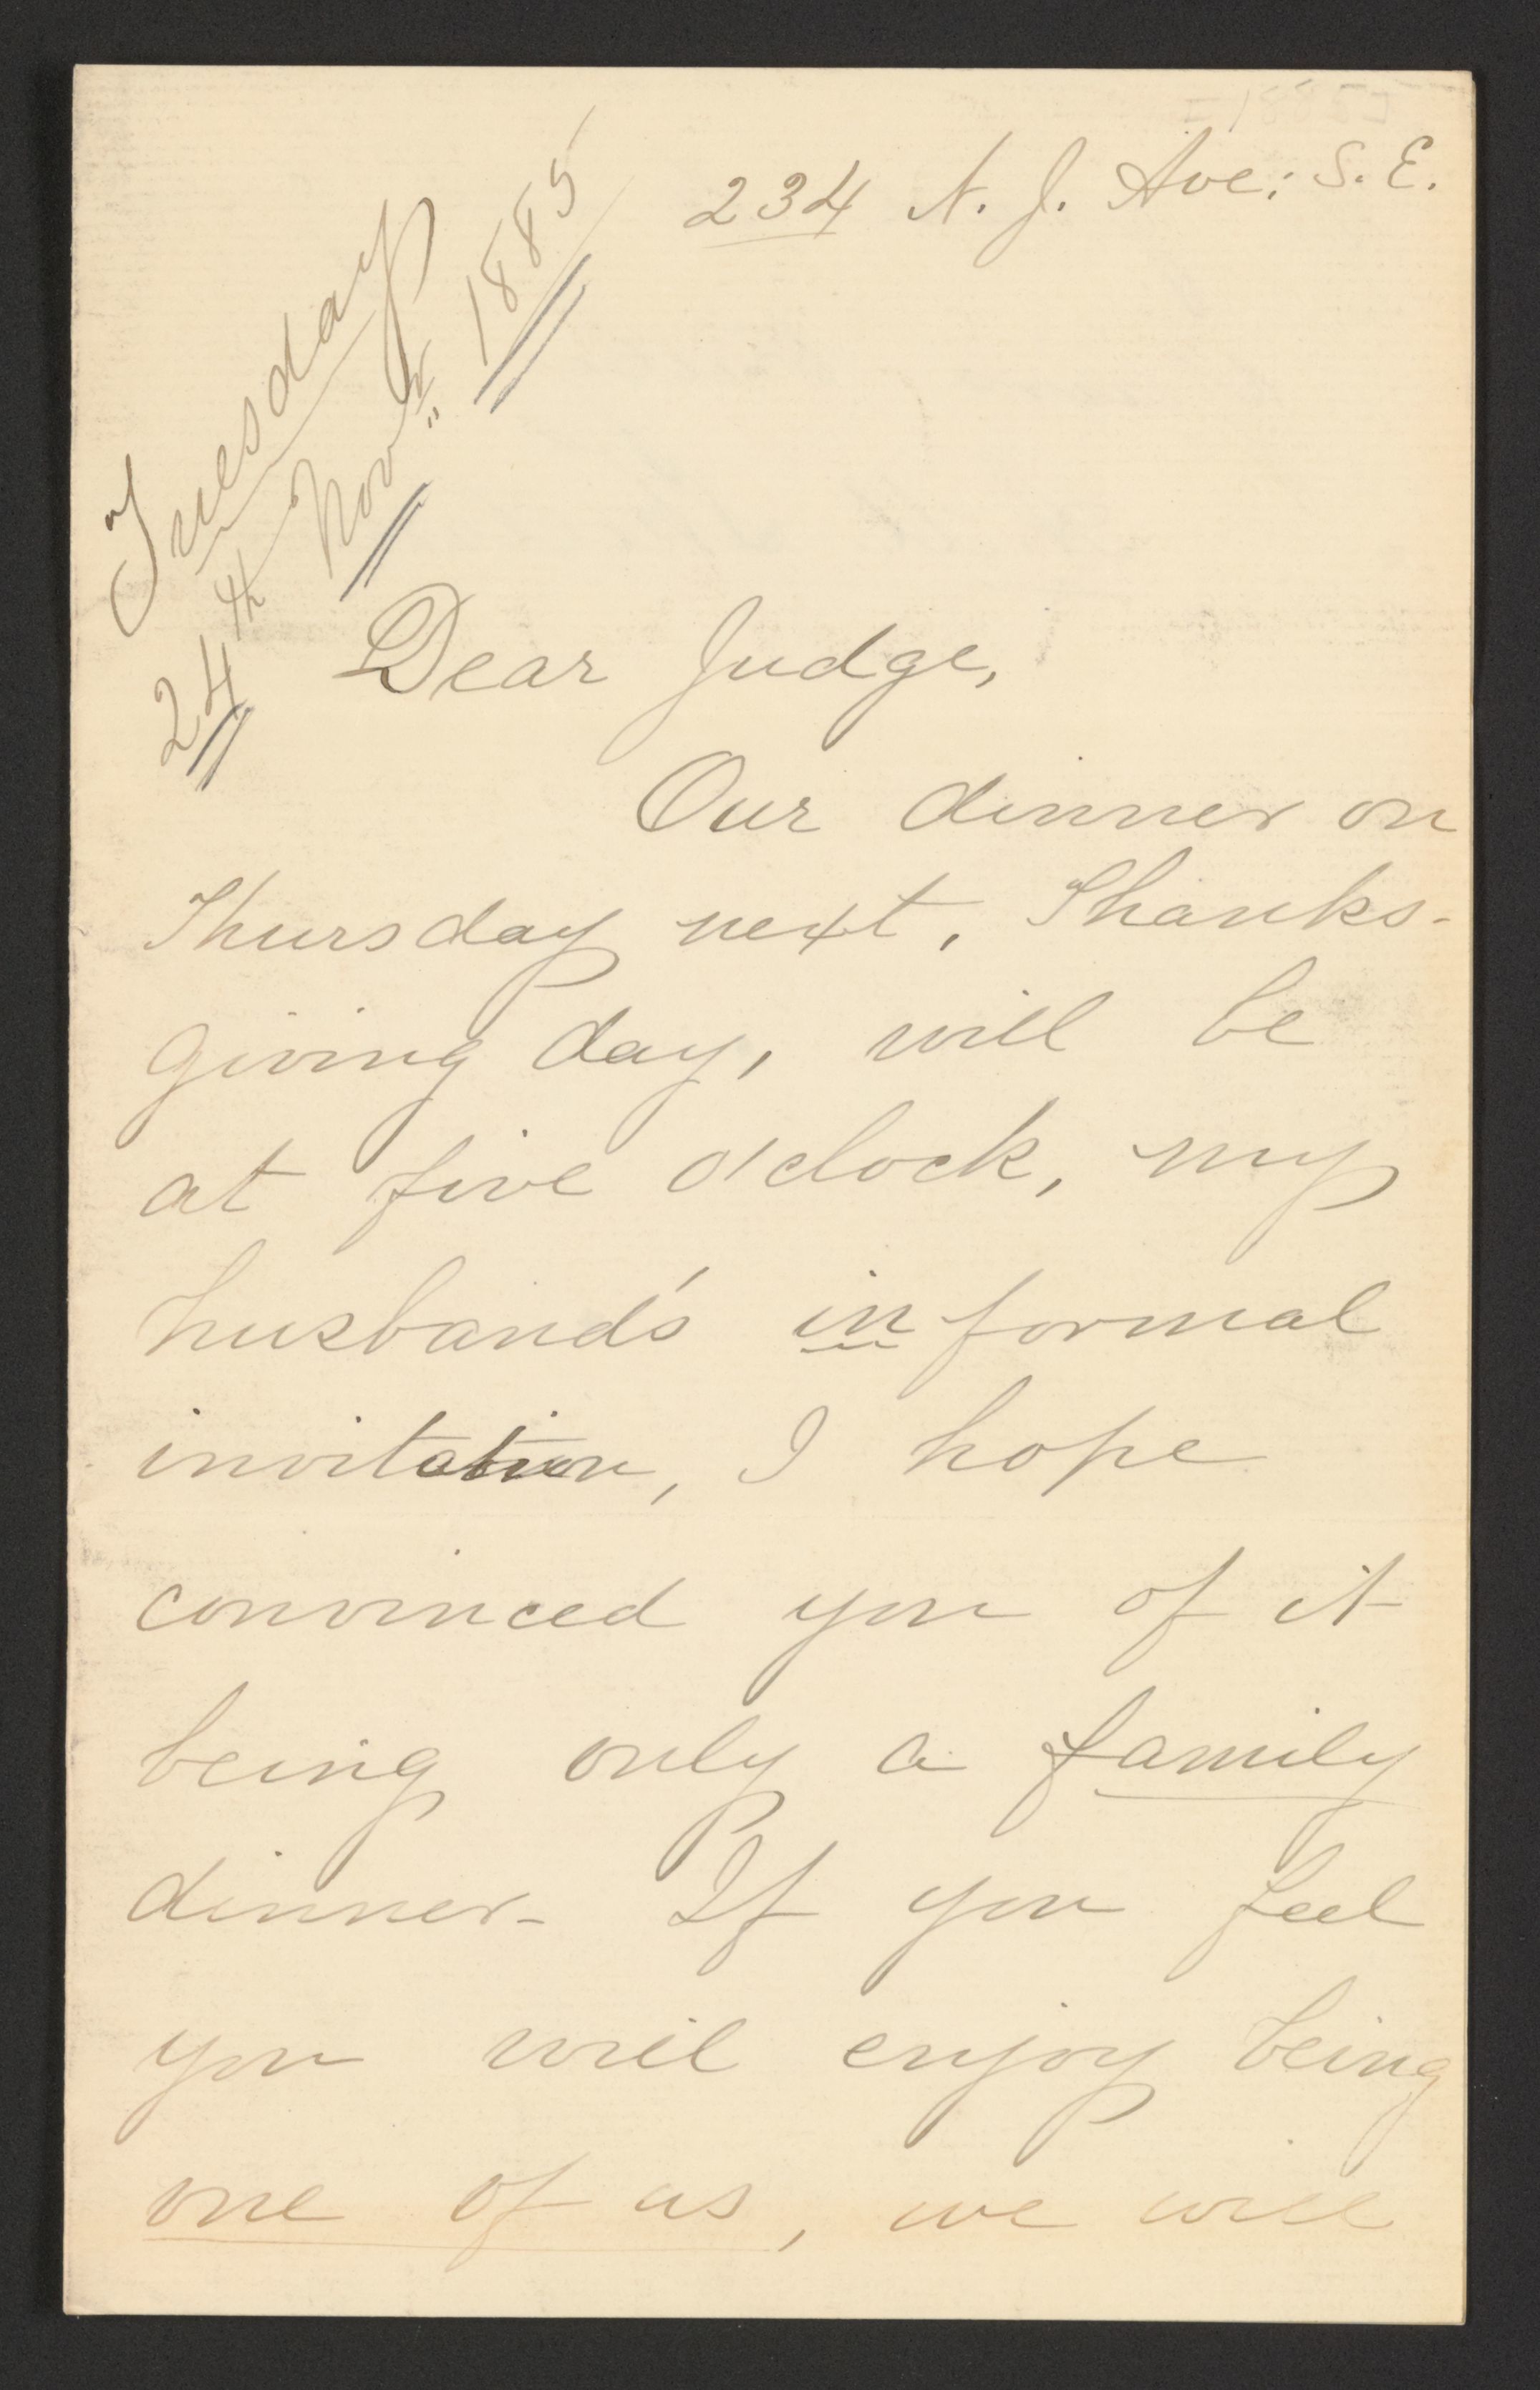 234 N. J. Ave: S. E.
Tuesday
24th Novr 1885
Dear Judge,
Our dinner on
Thursday next, Thanks-
giving day, will be
at five o'clock, my
husband's informal
invitation, I hope
convinced you of it
being only a family
dinner- If you feel
you will enjoy being
one of us, we will